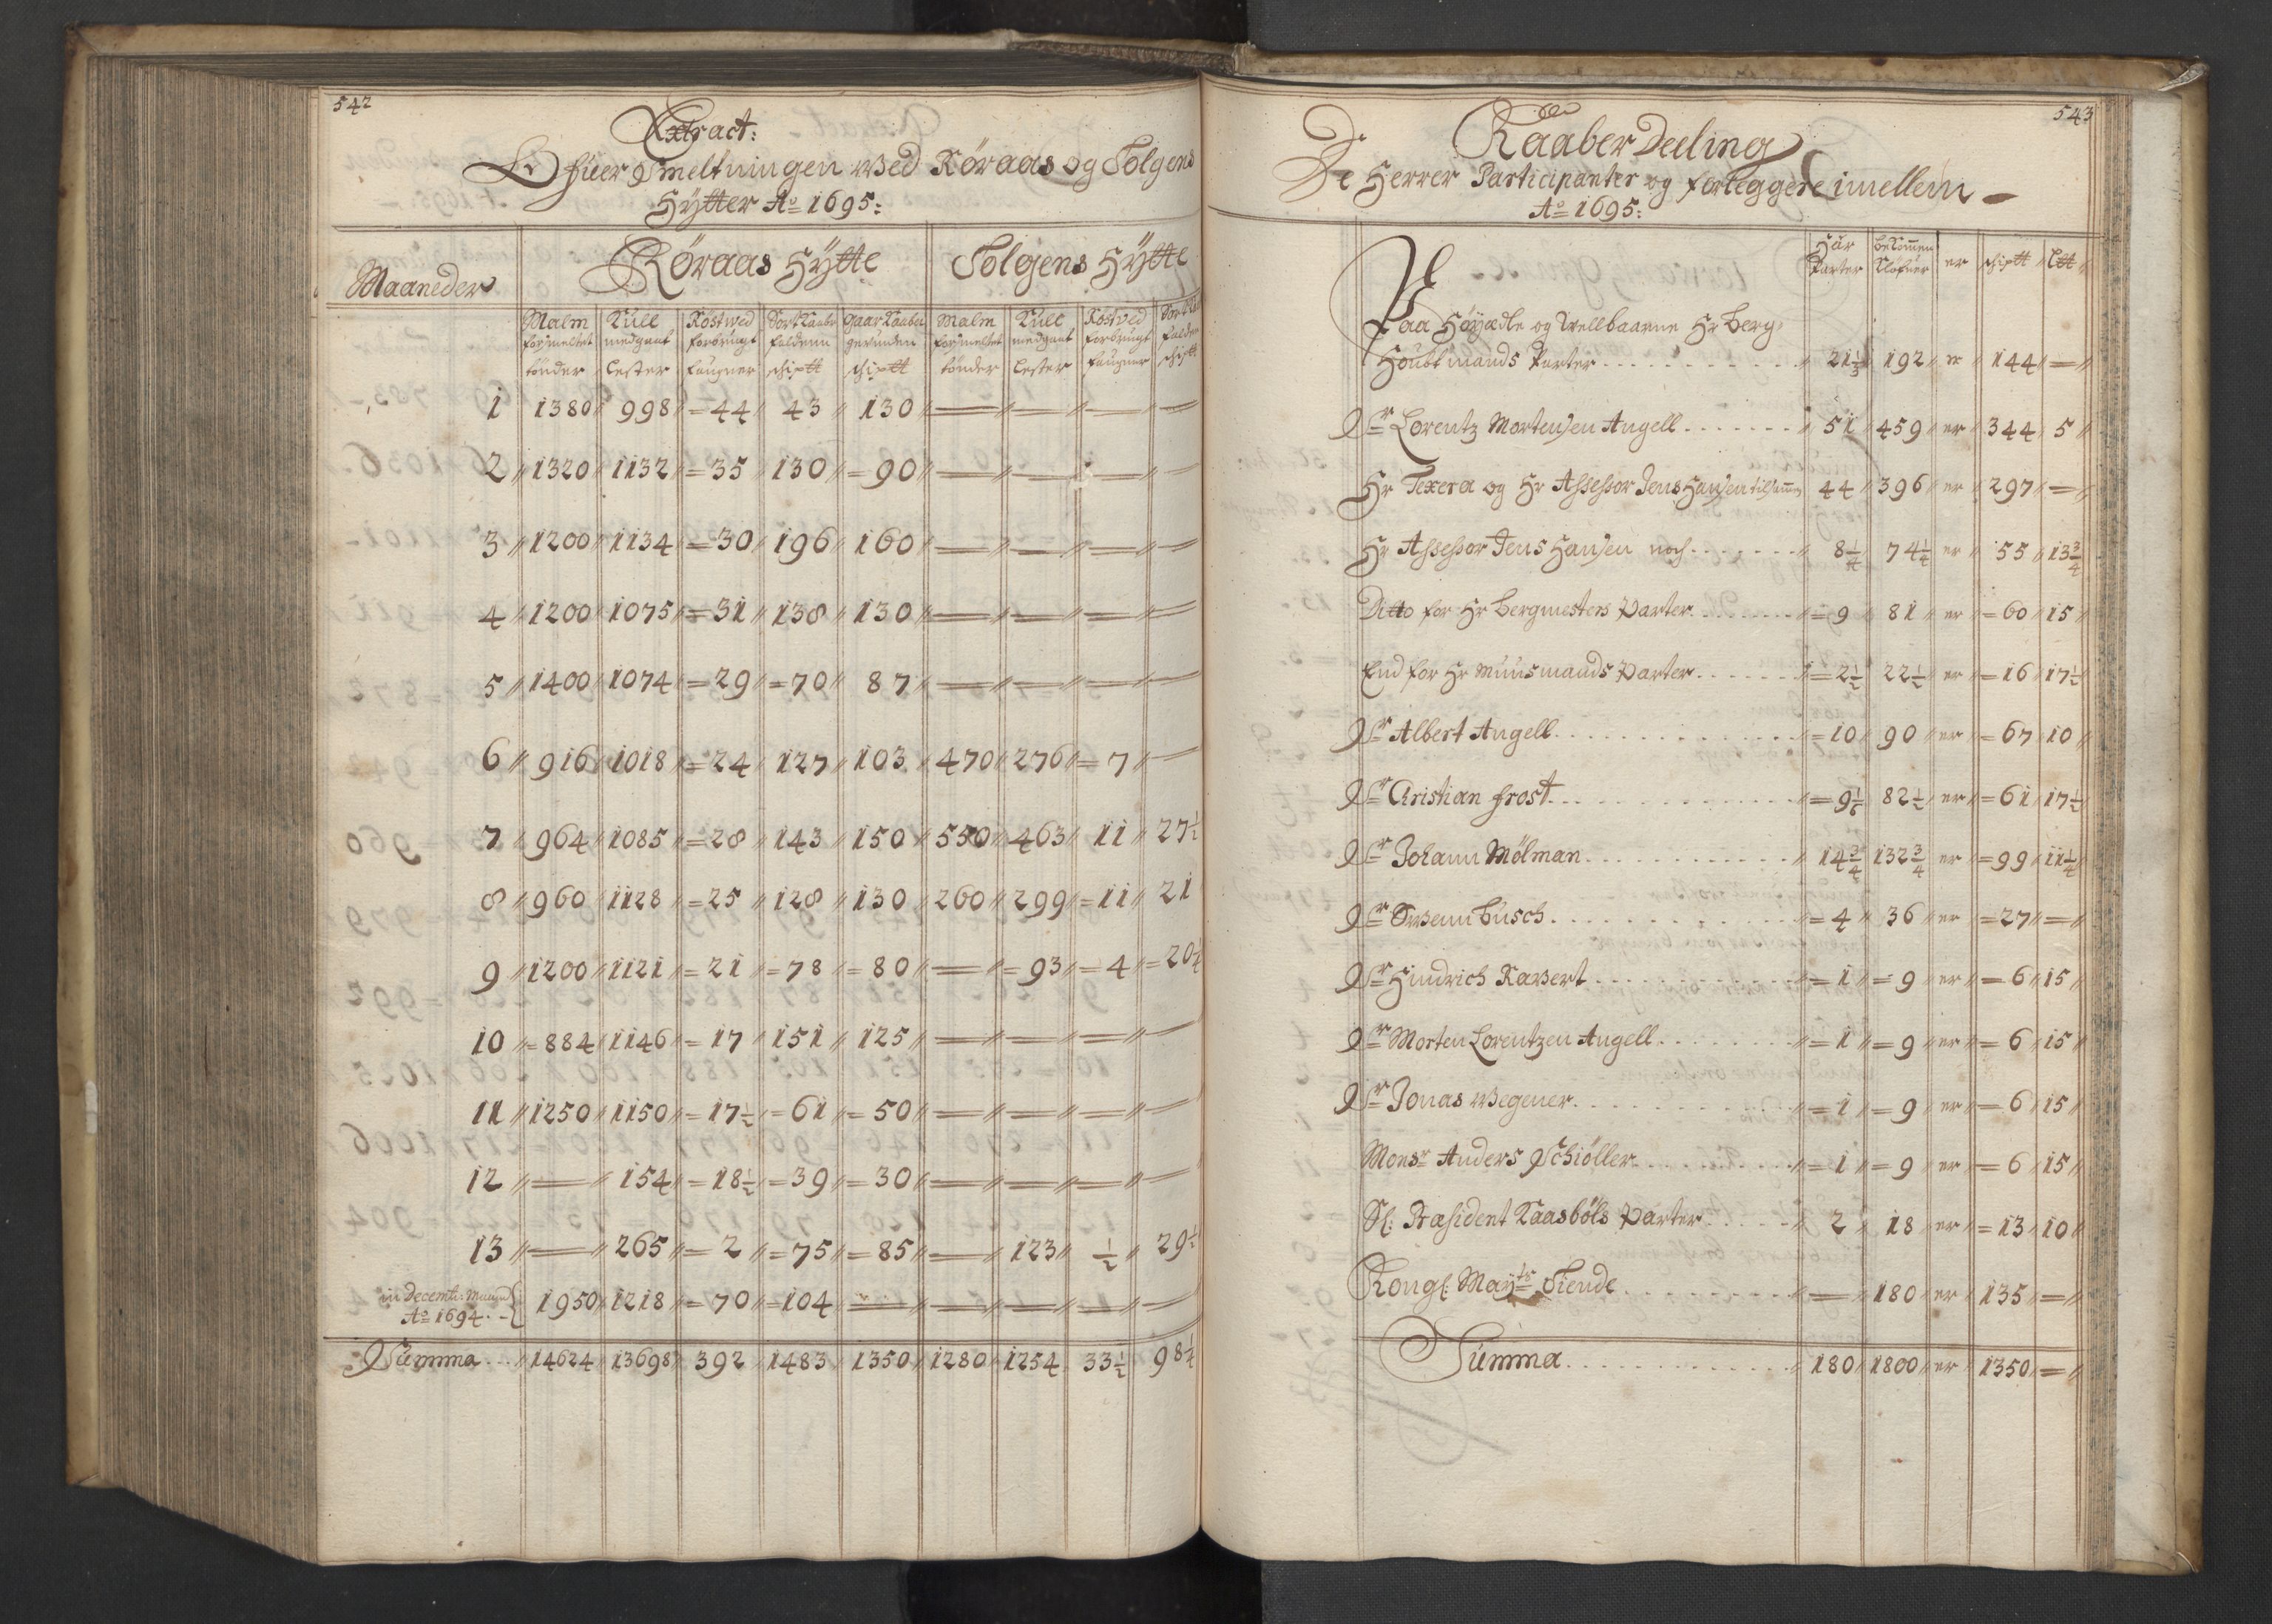 542
Extract:
Ofwer Smeltningen wed Röraas og Tolgens
Hÿtter Ao 1695:
Maaneder Röraas Hÿtte Tolgens Hÿtte
Malm Kull Röstwed Sort Kaaber gaar Kaaber Malm Kull Röstved
forsmeltet medgaat forbrugt faldenn forsmeltet medgaat forbrugt
tönder Lester faugner schiptt schiptt tönder Lester faugner schiptt
1 1380 998 = 44 43 130 — — — —
2 1320 1132 = 35 130 = 90 — — — —
3 1200 1134 = 30 196 160 — — — —
4 1200 1075 = 31 138 130 — — — —
5 1400 1074 = 29 = 70 87 — — — —
6 916 1018 = 24 127 103 470 276 = 7 —
7 964 1085 = 28 143 150 550 463 11 27½
8 960 1128 = 25 128 130 260 299 = 11 21
9 1200 1121 = 21 = 78 = 80 — = 93 = 4 = 20¼
10 = 884 1146 = 17 151 125 — — — —
11 1250 1150 = 17½ = 61 = 50 — — — —
12 — 154 = 18½ = 39 = 30 — — — —
13 — 265 = 2 = 75 = 85 — 123 ½ 29½
in Decemb: Maaned
Ao 1694. 1950 1218 = 70 = 104 — — — — —
Summa 14624 13698 392 1483 1350 1280 1254 33½ 98¼
543
Kaaber Deeling
De Herrer Participanter og forleggere imellem
Ao 1695:
Har bekommen
Parter Klöfuer er schiptt Ltt
Paa Höÿædle og Wellbaarne Hr Berg
Houbtmands Parter 21⅓ 192 er 144 =
Sr Lorentz Mortensen Angell 51 459 er 344 5
Hr Texera og Hr Assessor Jens Hansen tilsamen 44 396 er 297 =
Hr Assessor Jens Hansen noch 8¼ 74¼ er 55 13¾
Ditto for Hr Bergmesters Parter = 9 81 er = 60 15
End for Hr Muusmands Parter = 2½ 22½ er = 16 17½
Sr Albert Angell = 10 90 er = 67 10
Sr Christian Frost = 9⅙ 82½ er = 61 17½
Sr Johann Mölman 14¾ 132¾ er = 99 11¼
Sr Swenn Busch = 4 36 er = 27 =
Sr Hindrich Kawert = 1 = 9 er = 6 15
Sr Morten Lorentzen Angell = 1 = 9 er = 6 15
Sr Jonas Wegener = 1 = 9 er = 6 15
Monsr Anders Schiöller = 1 = 9 er = 6 15
Sl: Præsident Kaasböls Parter 2 18 er = 13 10
Kongl: Maÿts Tiende — 180 er 135 =
Summa 180 1800 er 1350 =